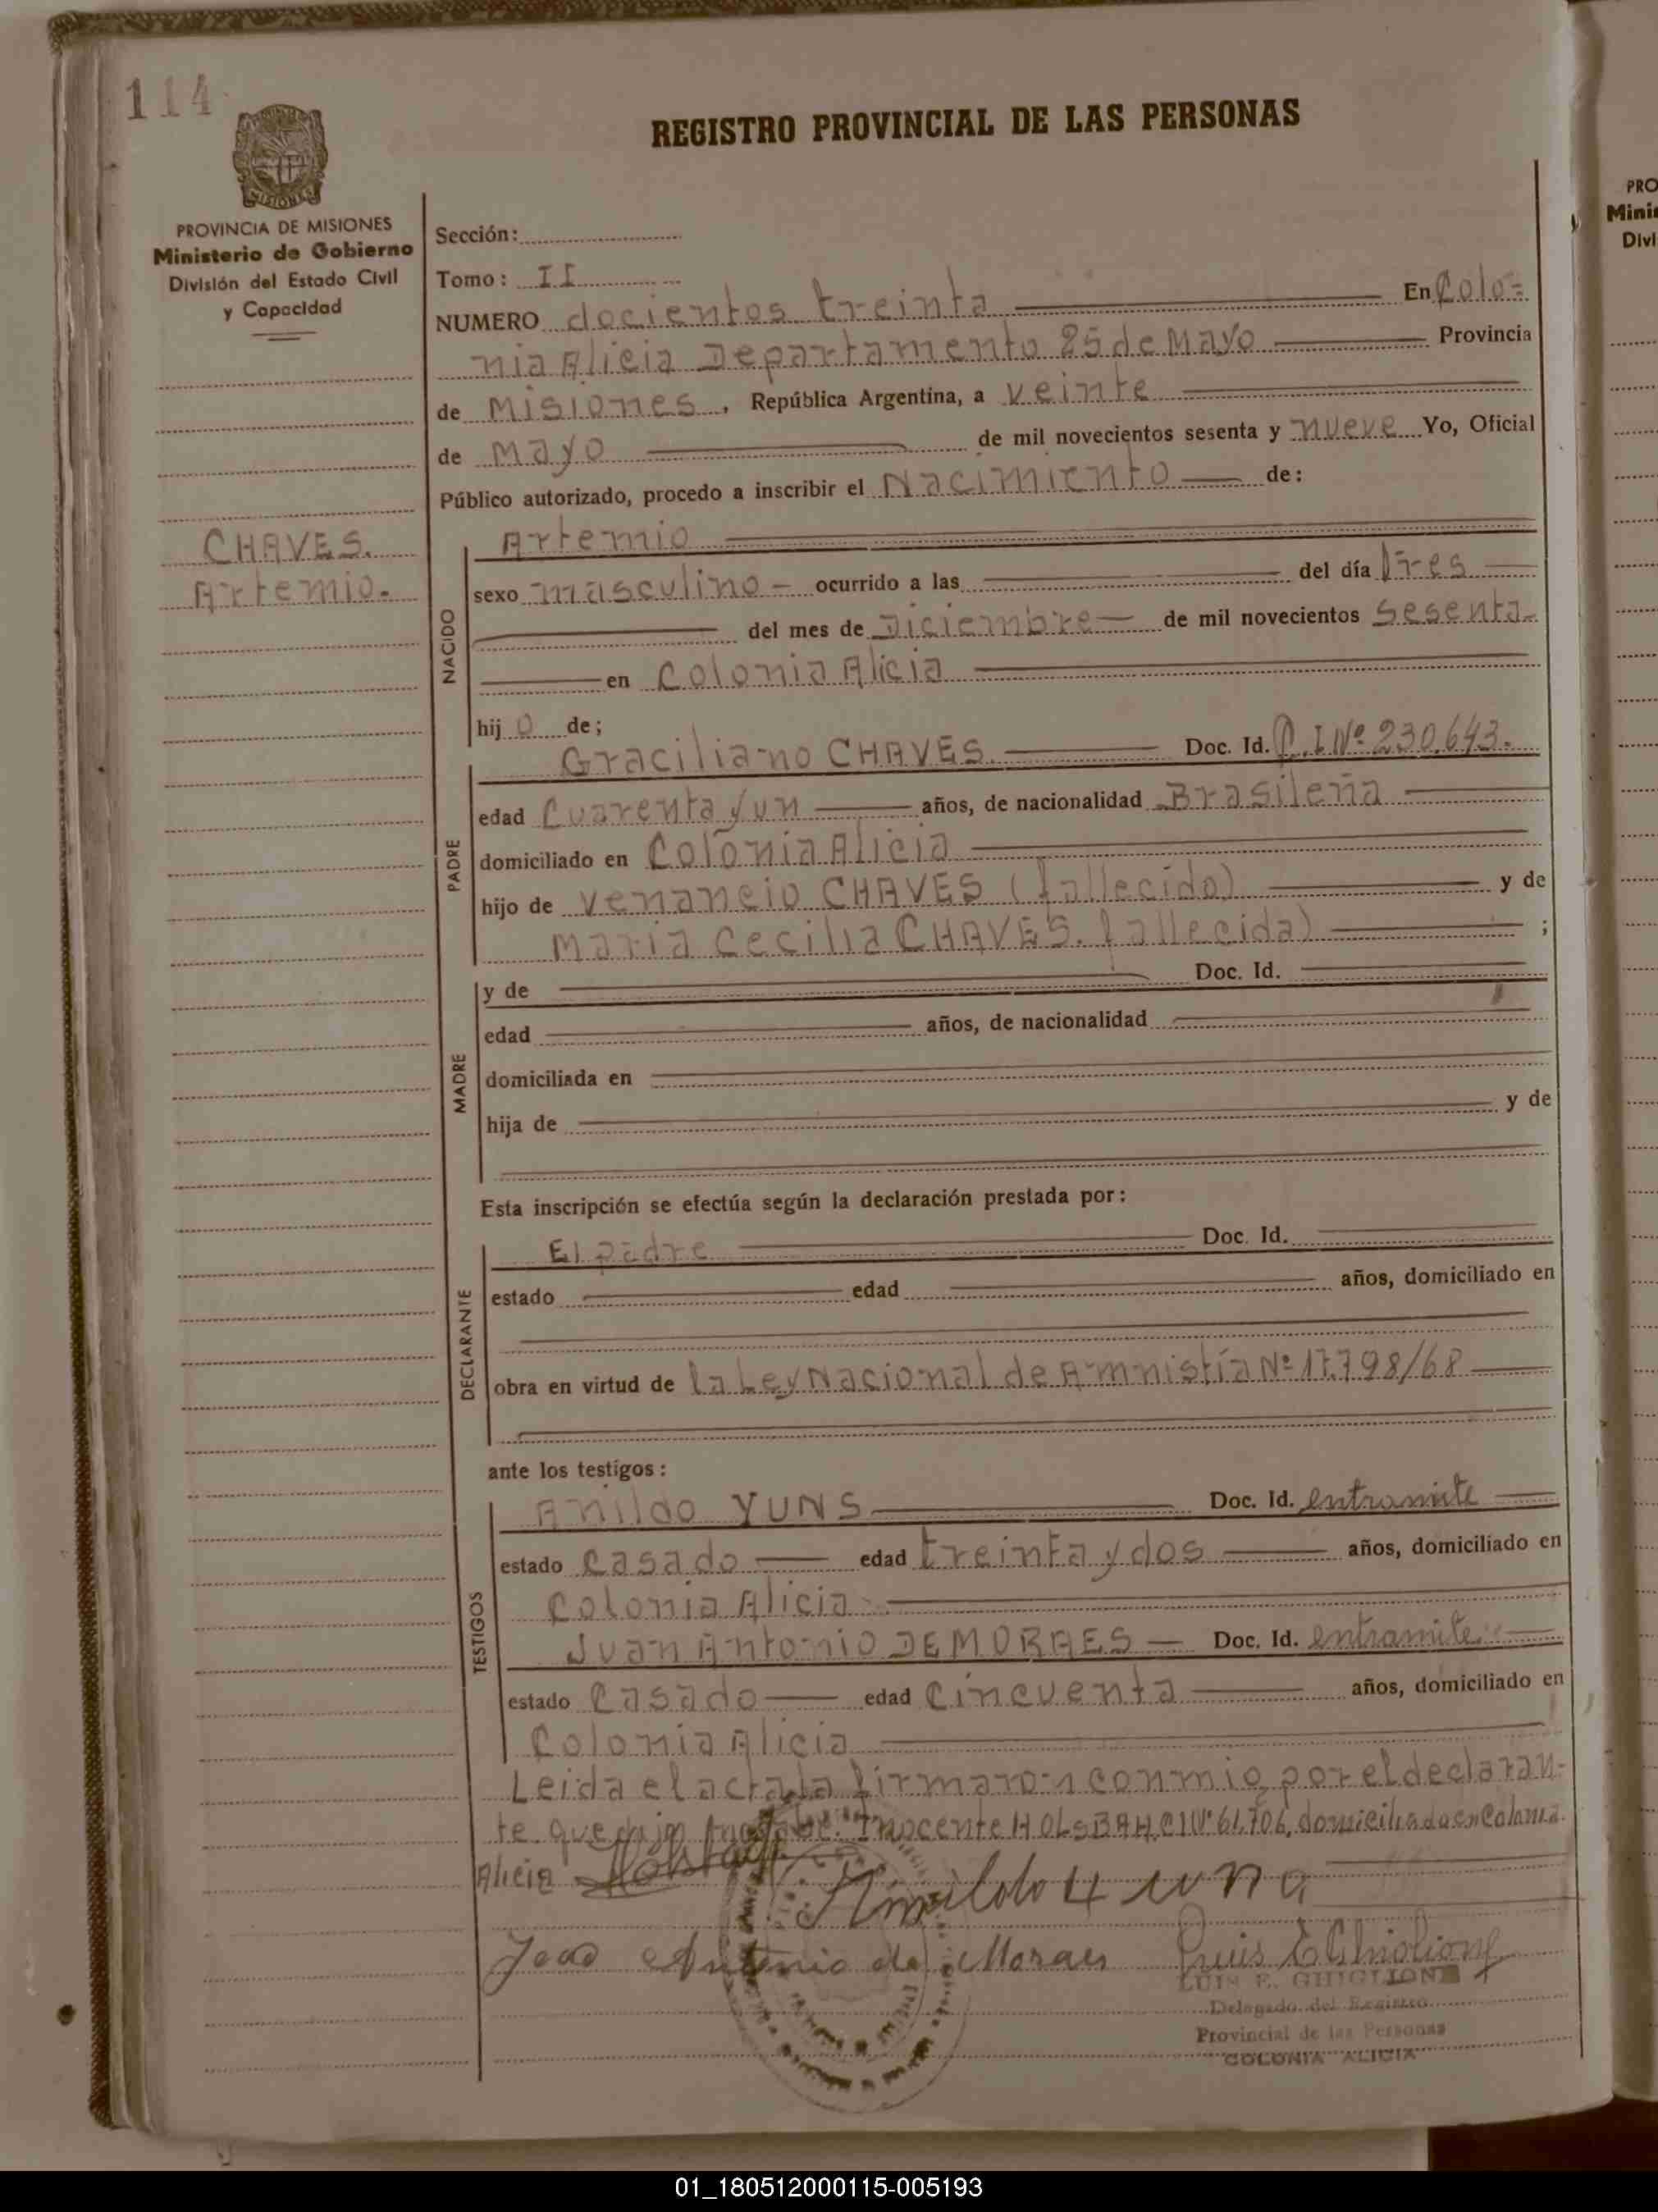 114
REGISTRO PROVINCIAL DE LAS PERSONAS
MISIONES
PROVINCIA DE MISIONES
Ministerio de Gobierno
División del Estado Civil
y Capacidad
CHAVES.
Artemio.
Sección:
Tomo: II
NUMERO docientos treinta En Colo=
nia Alicia Departamento 25 de Mayo Provincia
de Misiones, República Argentina, a veinte
de Mayo de mil novecientos sesenta y nueve Yo, Oficial
Público autorizado, procedo a inscribir el Nacimiento de:
NACIDO
Artemio
sexo masculino - ocurrido a las del día Tres
del mes de Diciembre de mil novecientos sesenta
en Colonia Alicia
hijo de;
PADRE
Graciliano CHAVES Doc. Id. C.I Nº 230.643.
edad Cuarenta y un años, de nacionalidad Brasileña
domiciliado en Colonia Alicia
hijo de Venancio CHAVES (fallecido) y de
Maria Cecilia CHAVES. fallecida) ;
MADRE
y de Doc. Id.
edad años, de nacionalidad
domiciliada en
hija de y de
Esta inscripción se efectúa según la declaración prestada por:
DECLARANTE
El padre Doc. Id.
estado edad años, domiciliado en
obra en virtud de la Ley Nacional de Amnistía Nº 17.798/68
ante los testigos:
TESTIGOS
Anildo YUNS Doc. Id. entramite
estado Casado edad treinta y dos años, domiciliado en
Colonia Alicia
Juan Antonio DE MORAES Doc. Id. entramite
estado Casado edad Cincuenta años, domiciliado en
Colonia Alicia
Leida el acta la firmaron conmigo por el declaran-
te que dijo Inocente HOLSBAH, CI Nº 61.706, domiciliado en Colonia
Alicia
Joao Antonio de Moraes
LUIS E. GHIGLIONE
Delegado del Registro
Provincial de las Personas
COLONIA ALICIA
PRO
Minis
Divi
01_180512000115-005193